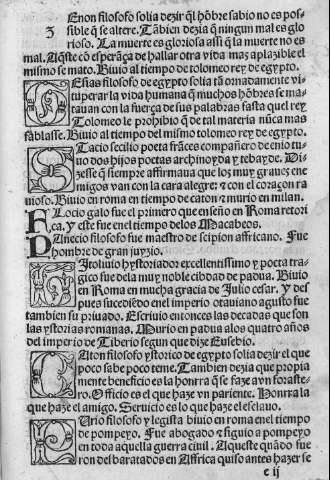 Enon filosofo solia dezir q̃l hõbre sabio no es pos-
sible q̃ se altere. Tãbien dezia q̃ ningun mal es glo
rioso. La muerte es gloriosa assi q̃ la muerte no es
mal. Aq̃ste cõ esperãça de hallar otra vida mas aplazible el
mismo se mato. Biuio al tiempo de tolomeo rey de egypto.
Esias filosofo de egypto solia tã ornadamente vi-
tuperar la vida humana q̃ muchos hõbres se ma-
tauan con la fuerça de sus palabras fasta quel rey
Tolomeo le prohibio q̃ de tal materia nũca mas
fablasse. Biuio al tiempo del mismo tolomeo rey de egypto.
Stacio secilio poeta frãces compañero de enio tu-
uo dos hijos poetas archinoyda y tebayde. Di-
zesse q̃ siempre affirmaua que los muy graues ene
migos van con la cara alegre: & con el coraçon ra
uioso. Biuio en roma en tiempo de caton & murio en milan.
Flocio galo fue el primero que enseño en Roma retori
ca. Y este fue en el tiempo de los Macabeos.
Panecio filosofo fue maestro de scipion affricano. Fue
hombre de gran juyzio.
Titoliuio hystoriador excellentissimo y poeta tra-
gico fue de la muy noble cibdad de padua. Biuio
en Roma en mucha gracia de Julio cesar. Y des
pues sucediẽdo en el imperio otauiano agusto fue
tambien su priuado. Escriuio entonces las decadas que son
las ystorias romanas. Murio en padua a los quatro años
del imperio de Tiberio segun que dize Eusebio.
Calton filosofo y storico de egypto solia dezir el que
poco sabe poco teme. Tambien dezia que propia
mente beneficio es la honrra q̃ se faze a vn foraste-
ro. Officio es el que haze vn pariente. Honrra la
que haze el amigo. Seruicio es lo que haze el esclauo.
Curio filosofo y legista biuio en roma en el tiempo
de pompeyo. Fue abogado & siguio a pompeyo
en toda aquella guerra ciuil. Aqueste quãdo fue
ron desbaratados en Affrica quiso antes hazer se
e ij